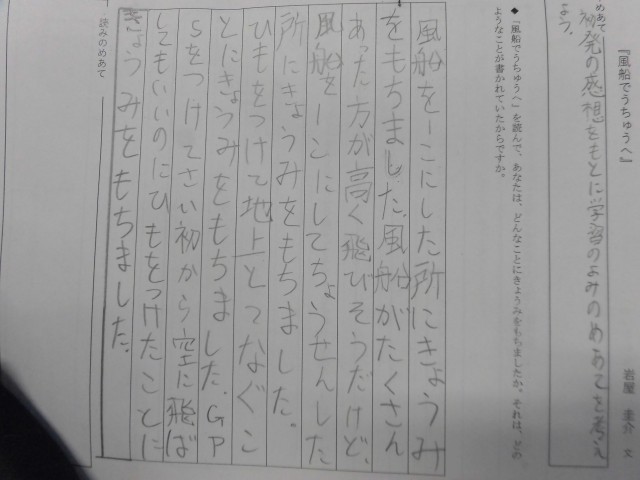 『風船でうちゅうへ』
岩屋 圭介 文
めあて
初発の感想をもとに学習のよみのめあてを考え
よう。
◆「風船でうちゅうへ」を読んで、あなたは、どんなことにきょうみをもちましたか。それは、どの
ようなことが書かれていたからですか。
風船を一こにした所にきょうみ
をもちました。風船がたくさん
あった方が高く飛びそうだけど、
風船を一こにしてちょうせんした
所にきょうみをもちました。
ひもをつけて地上とつなぐこ
とにきょうみをもちました。GP
Sをつけてさい初から空に飛ば
してもいいのにひもをつけたことに
きょうみをもちました。
読みのめあて